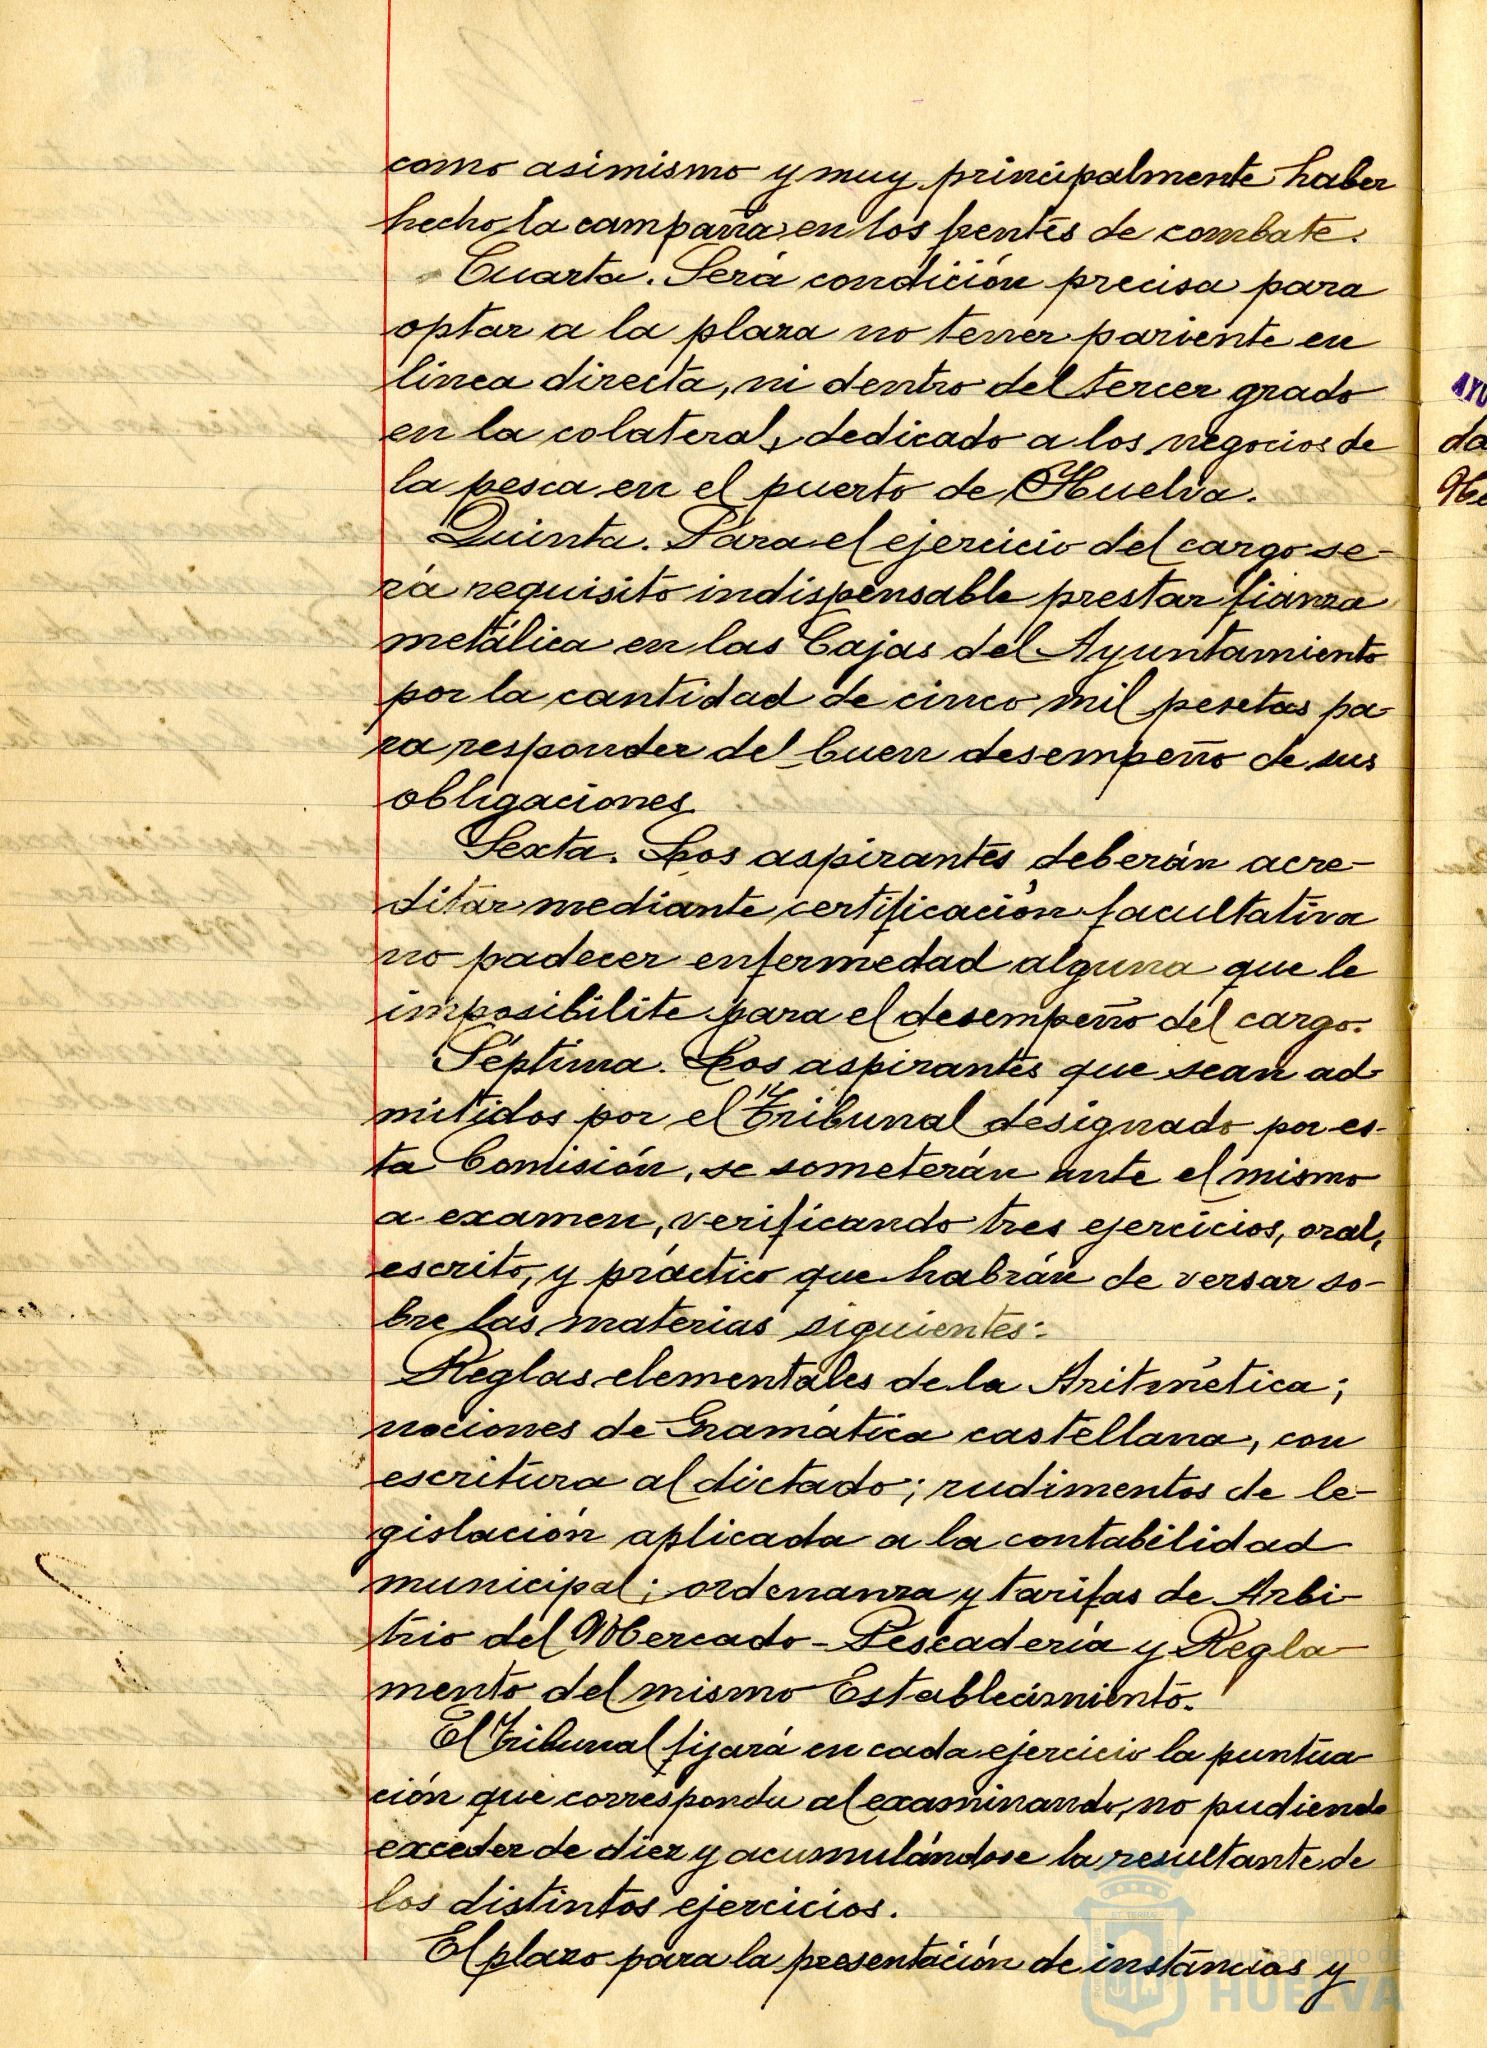 como asimismo y muy principalmente haber
hecho la campaña en los frentes de combate.
Cuarta. Será condición precisa para
optar a la plaza no tener pariente en
linea directa, ni dentro del tercer grado
en la colateral, dedicado a los negocios de
la pesca en el puerto de Huelva.
Quinta. Para el ejercicio del cargo se-
rá requisito indispensable prestar fianza
metálica en las Cajas del Ayuntamiento
por la cantidad de cinco mil pesetas pa-
ra responder del buen desempeño de sus
obligaciones
Sexta. Los aspirantes deberán acre-
ditar mediante certificación facultativa
no padecer enfermedad alguna que le
imposibilite para el desempeño del cargo.
Séptima. Los aspirantes que sean ad-
mitidos por el Tribunal designado por es-
ta Comisión, se someterán ante el mismo
a examen, verificando tres ejercicios, oral,
escrito, y práctico que habrán de versar so-
bre las materias siguientes:
Reglas elementales de la Aritmética;
nociones de Gramática castellana, con
escritura al dictado; rudimentos de le-
gislación aplicada a la contabilidad
municipal; ordenanza y tarifas de Arbi-
trio del Mercado-Pescadería y Regla-
mento del mismo Establecimiento.
El Tribunal fijará en cada ejercicio la puntua-
ción que corresponda al examinando, no pudiendo
exceder de diez y acumulándose la resultante de
los distintos ejercicios.
El plazo para la presentación de instancias y
Ayuntamiento de
HUELVA